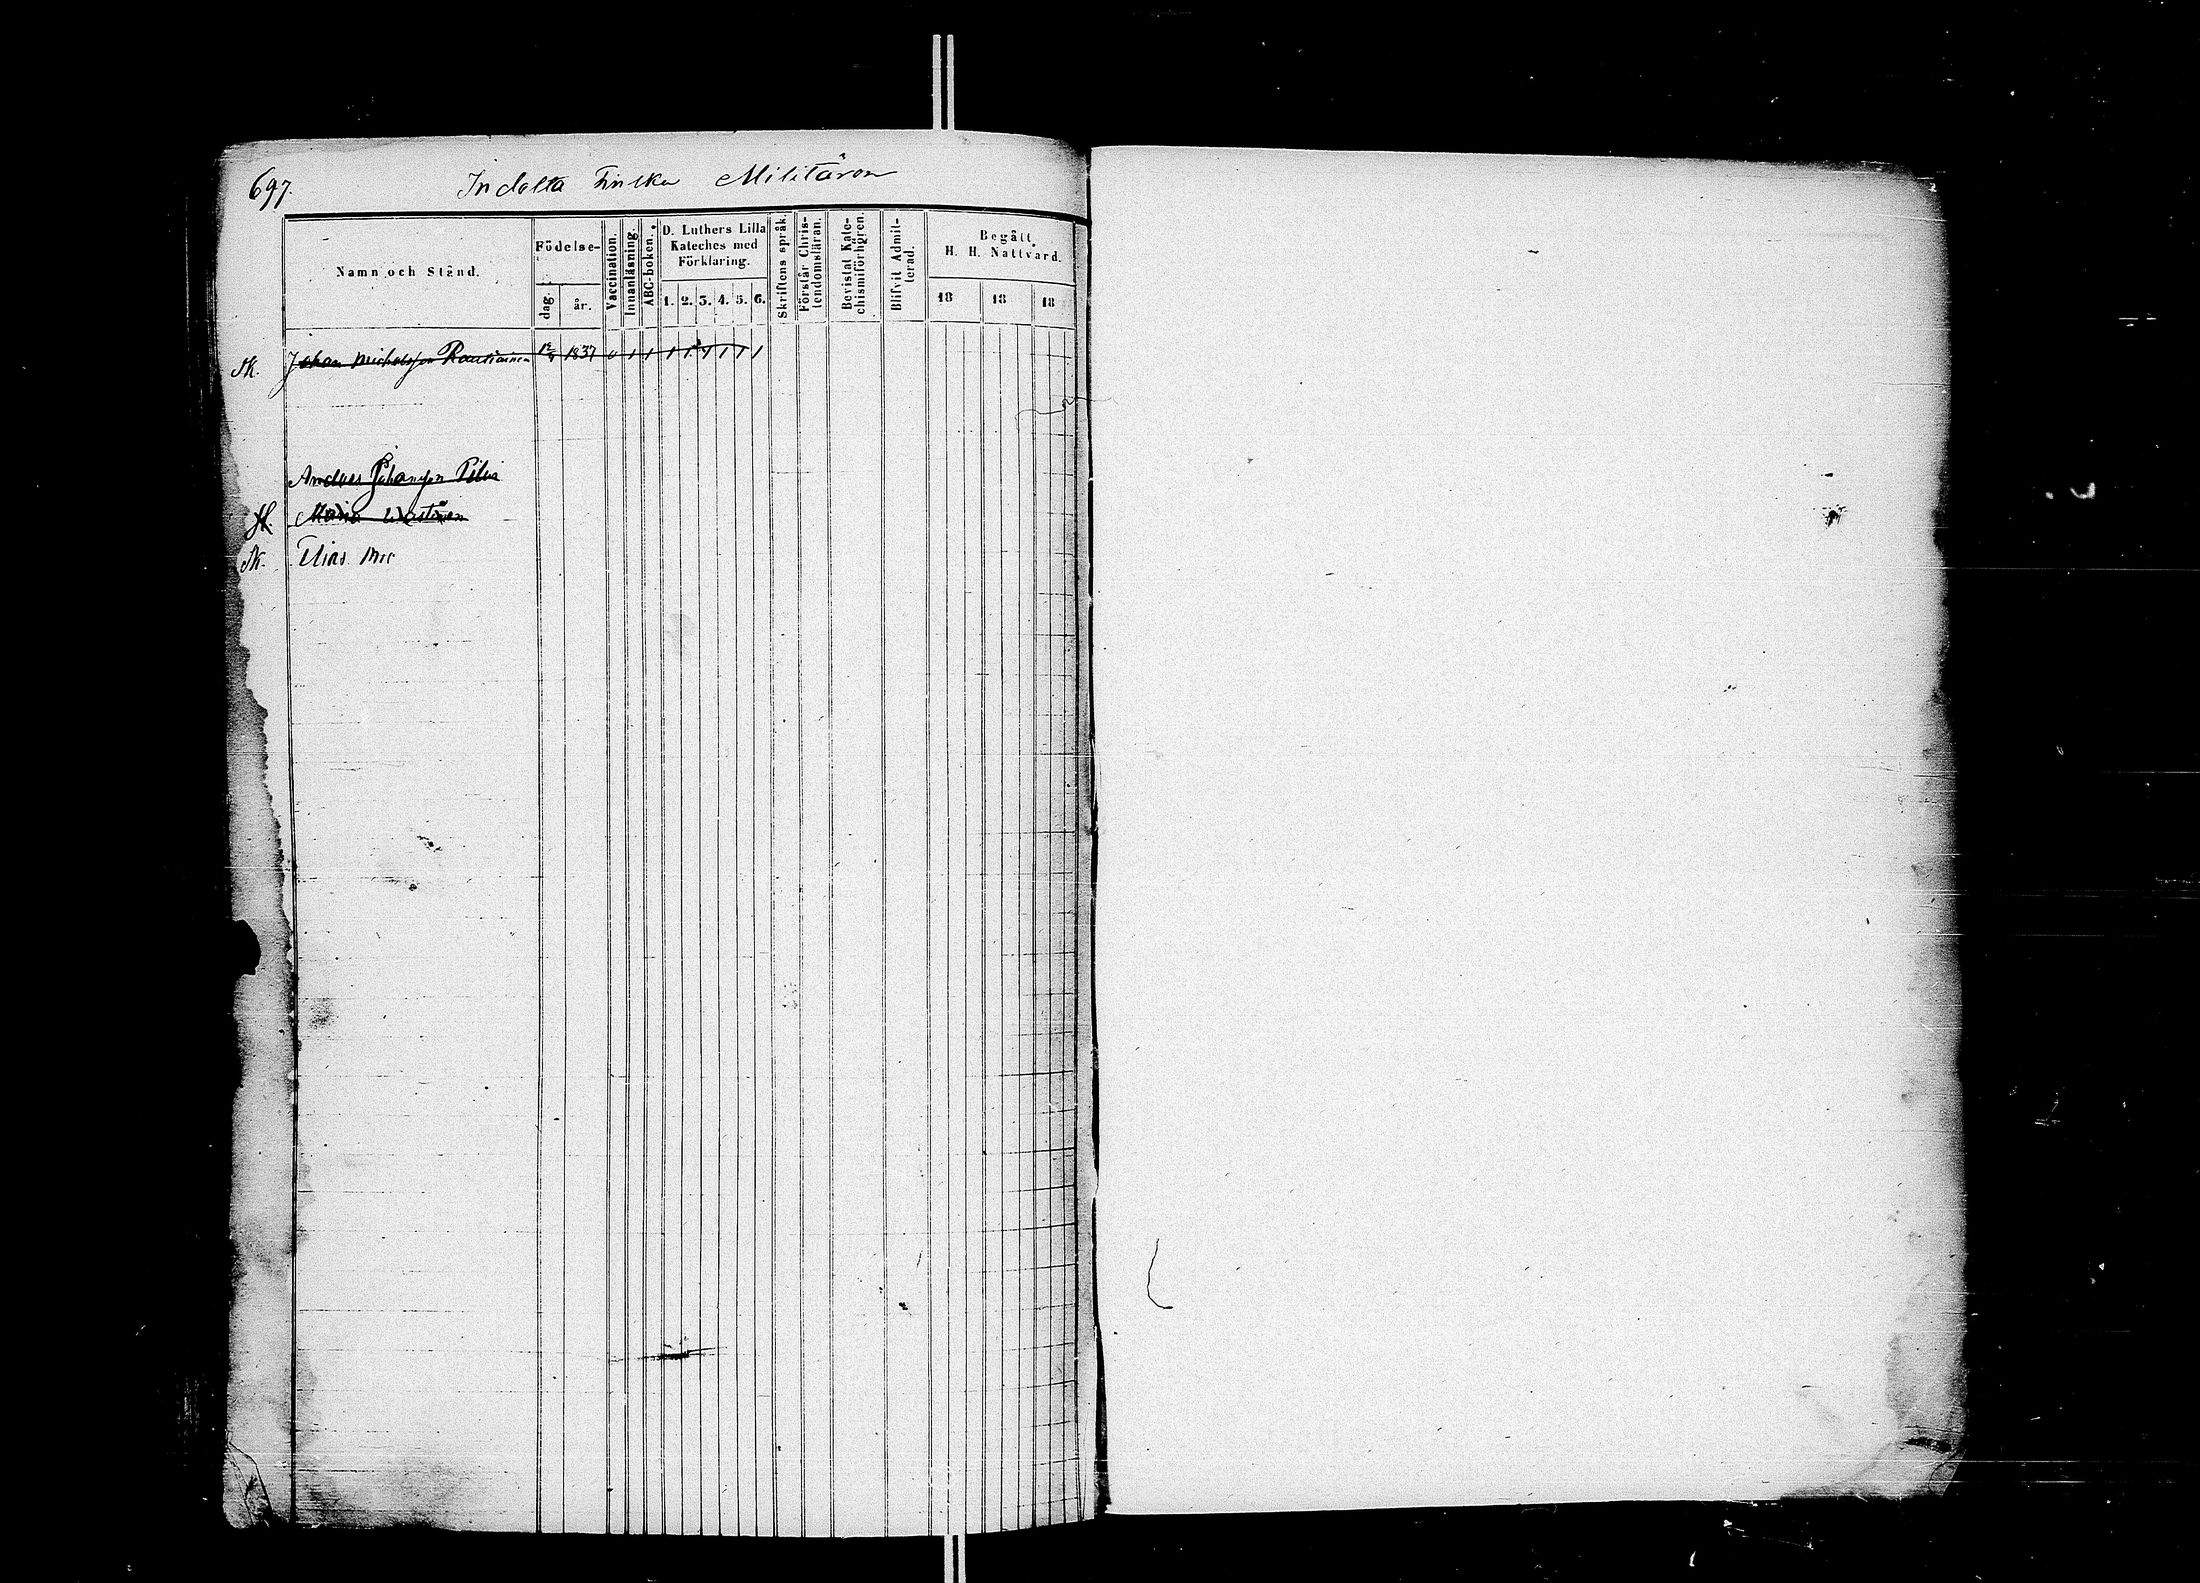 697.
Indelta Finska Militären
Namn och Stånd.
Födelse-
dag.
år.
Vaccination.
Innanläsning.
ABC-boken.
D. Luthers Lilla
Kateches med
Förklaring.
1. 2. 3. 4. 5. 6.
Skriftens språk.
Förstår Chris-
tendomsläran.
Bevistat Kate-
chismiförhören.
Blifvit Admit-
terad.
Begått
H. H. Nattvard.
18 18 18
Johan Michelsson Rautiainen 1837 1 1 1 1 1 1 1
Anders Johansson
Maria
Elias Mic